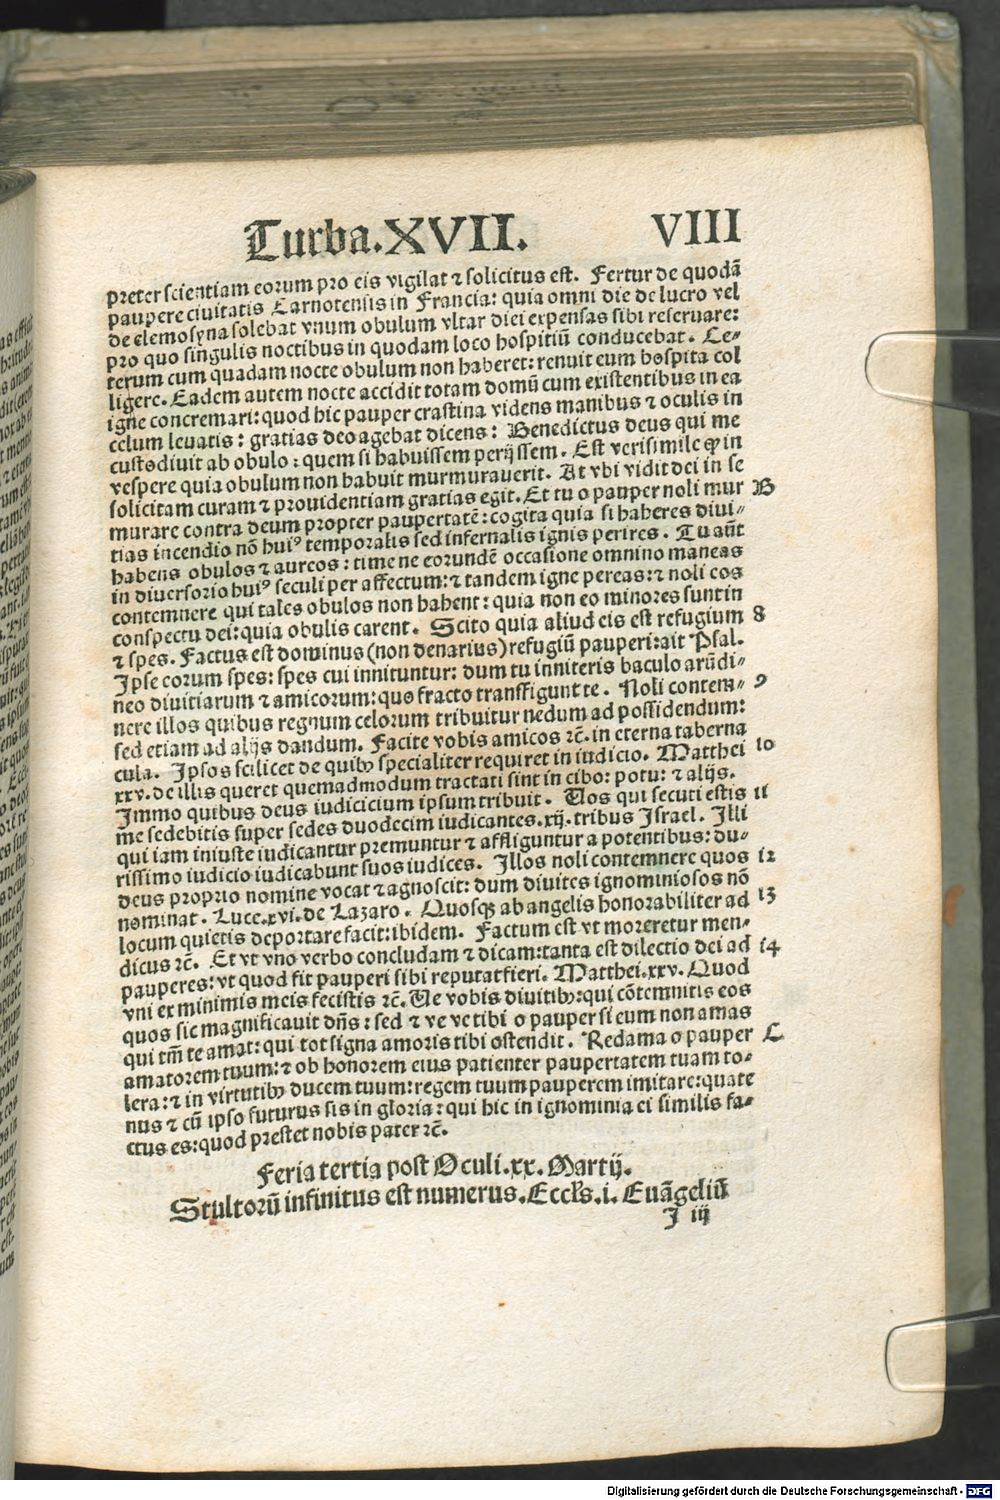 Turba.XVII. VIII
preter scientiam eorum pro eis vigilat ⁊ solicitus est. Fertur de quodā
paupere ciuitatis Carnotensis in Francia: quia omni die de lucro vel
de elemosyna solebat vnum obulum vltar diei expensas sibi reseruare:
pro quo singulis noctibus in quodam loco hospitiū conducebat. Ce⸗
terum cum quadam nocte obulum non haberet: renuit eum hospita col
ligere. Eadem autem nocte accidit totam domū cum existentibus in ea
igne concremari: quod hic pauper crastina videns manibus ⁊ oculis in
celum leuatis: gratias deo agebat dicens: Benedictus deus qui me
custodiuit ab obulo: quem si habuissem perijssem. Est verisimile ꝙ in
vespere quia obulum non habuit murmurauerit. At vbi vidit dei in se
solicitam curam ⁊ prouidentiam gratias egit. Et tu o pauper noli mur B
murare contra deum propter paupertatē: cogita quia si haberes diui⸗
tias incendio nō huiꝰ temporalis sed infernalis ignis perires. Tu aūt
habens obulos ⁊ aureos: time ne eorundē occasione omnino maneas
in diuersorio huiꝰ seculi per affectum: ⁊ tandem igne pereas: ⁊ noli eos
contemnere qui tales obulos non habent: quia non eo minores sunt in
conspectu dei: quia obulis carent. Scito quia aliud eis est refugium 8
⁊ spes. Factus est dominus (non denarius) refugiū pauperi: ait Psal.
Ipse eorum spes: spes cui innituntur: dum tu inniteris baculo arūdi⸗
neo diuitiarum ⁊ amicorum: quo fracto transfigunt te. Noli contem⸗ 9
nere illos quibus regnum celorum tribuitur nedum ad possidendum:
sed etiam ad alijs dandum. Facite vobis amicos ⁊c. in eterna taberna
cula. Ipsos scilicet de quibꝰ specialiter requiret in iudicio. Matthei 10
xxv. de illis queret quemadmodum tractati sint in cibo: potu: ⁊ alijs.
Immo quibus deus iudicicium ipsum tribuit. Uos qui secuti estis 11
me sedebitis super sedes duodecim iudicantes .xij. tribus Israel. Illi
qui iam iniuste iudicantur premuntur ⁊ affliguntur a potentibus: du⸗
rissimo iudicio iudicabunt suos iudices. Illos noli contemnere quos 12
deus proprio nomine vocat ⁊ agnoscit: dum diuites ignominiosos nō
nominat. Luce.xvi. de Lazaro. Quosqꝫ ab angelis honorabiliter ad 13
locum quietis deportare facit: ibidem. Factum est vt moreretur men⸗
dicus ⁊c. Et vt vno verbo concludam ⁊ dicam: tanta est dilectio dei ad 14
pauperes: vt quod fit pauperi sibi reputat fieri. Matthei.xxv. Quod
vni ex minimis meis fecistis ⁊c. Ue vobis diuitibꝰ: qui cōtemnitis eos
quos sic magnificauit dn̄s: sed ⁊ ve ve tibi o pauper si eum non amas
qui tm̄ te amat: qui tot signa amoris tibi ostendit. Redama o pauper C
amatorem tuum: ⁊ ob honorem eius patienter paupertatem tuam to⸗
lera: ⁊ in virtutibꝰ ducem tuum: regem tuum pauperem imitare: quate
nus ⁊ cū ipso futurus sis in gloria: qui hic in ignominia ei similis fa⸗
ctus es: quod prestet nobis pater ⁊c.
Feria tertia post Oculi.xx. Martij.
Stultorū infinitus est numerus. Eccl's.i. Euāgeliū
I iij
Digitalisierung gefördert durch die Deutsche Forschungsgemeinschaft - DFG